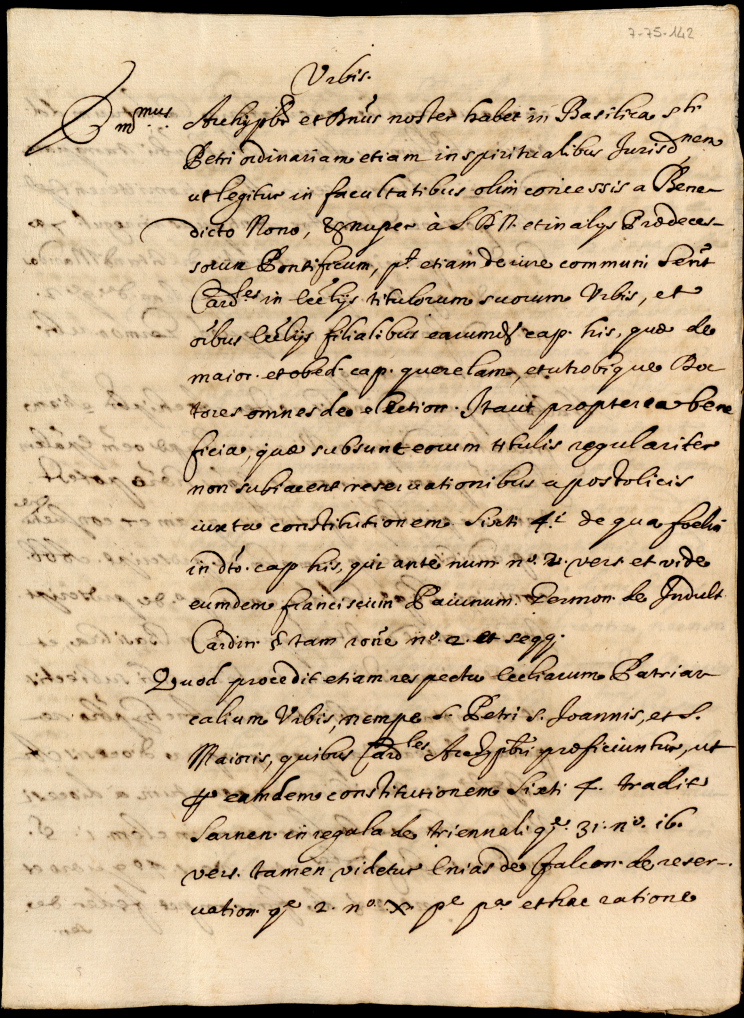 7-75-142
Urbis.
Em^mus Archypbr et Dnus noster habet in Basilica s^ti
Petri ordinariam etiam in spiritualibus Jurisd^nem
ut legitur in facultatibus olim concessis a Bene-
dicto Nono, & nuper à S. D. N. et in alys Prædeces-
sorum Pontificum, pt etiam de iure communi sent
Card^les in Eccliis titulorum suorum Urbis, et
oibus Eccliis filialibus earumd cap. his, quæ de
maior. et obed. cap. querelam, et utrobique Doc
tores omnes de election. Itaut propterea bene
ficia, quæ subsunt eorum titulis regulariter
non subiacent reservationibus apostolicis
iuxta constitutionem Sixti 4.^i de qua foelin
in dto. cap his, qui ante num. n.^o 2. vers. et vide
eumdem franciscum Paiunum. Zermon. de Indult
Cardin. § tam rone n.^o 2. et seqq.
Quod procedit etiam respectu Eccliarum Patriar
calium Urbis, nempe S. Petri S. Joannis, et S.
Maioris, quibus Card^les Archypbri præficiuntur, ut
p eamdem constitutionem Sixti 4. tradit
Sarnen. in regula de triennali q^e. 31. n.^o 16.
vers. tamen videtur de falcon. de reser-
vation. q^e 2. n.^o X. p^e p^a et hac ratione